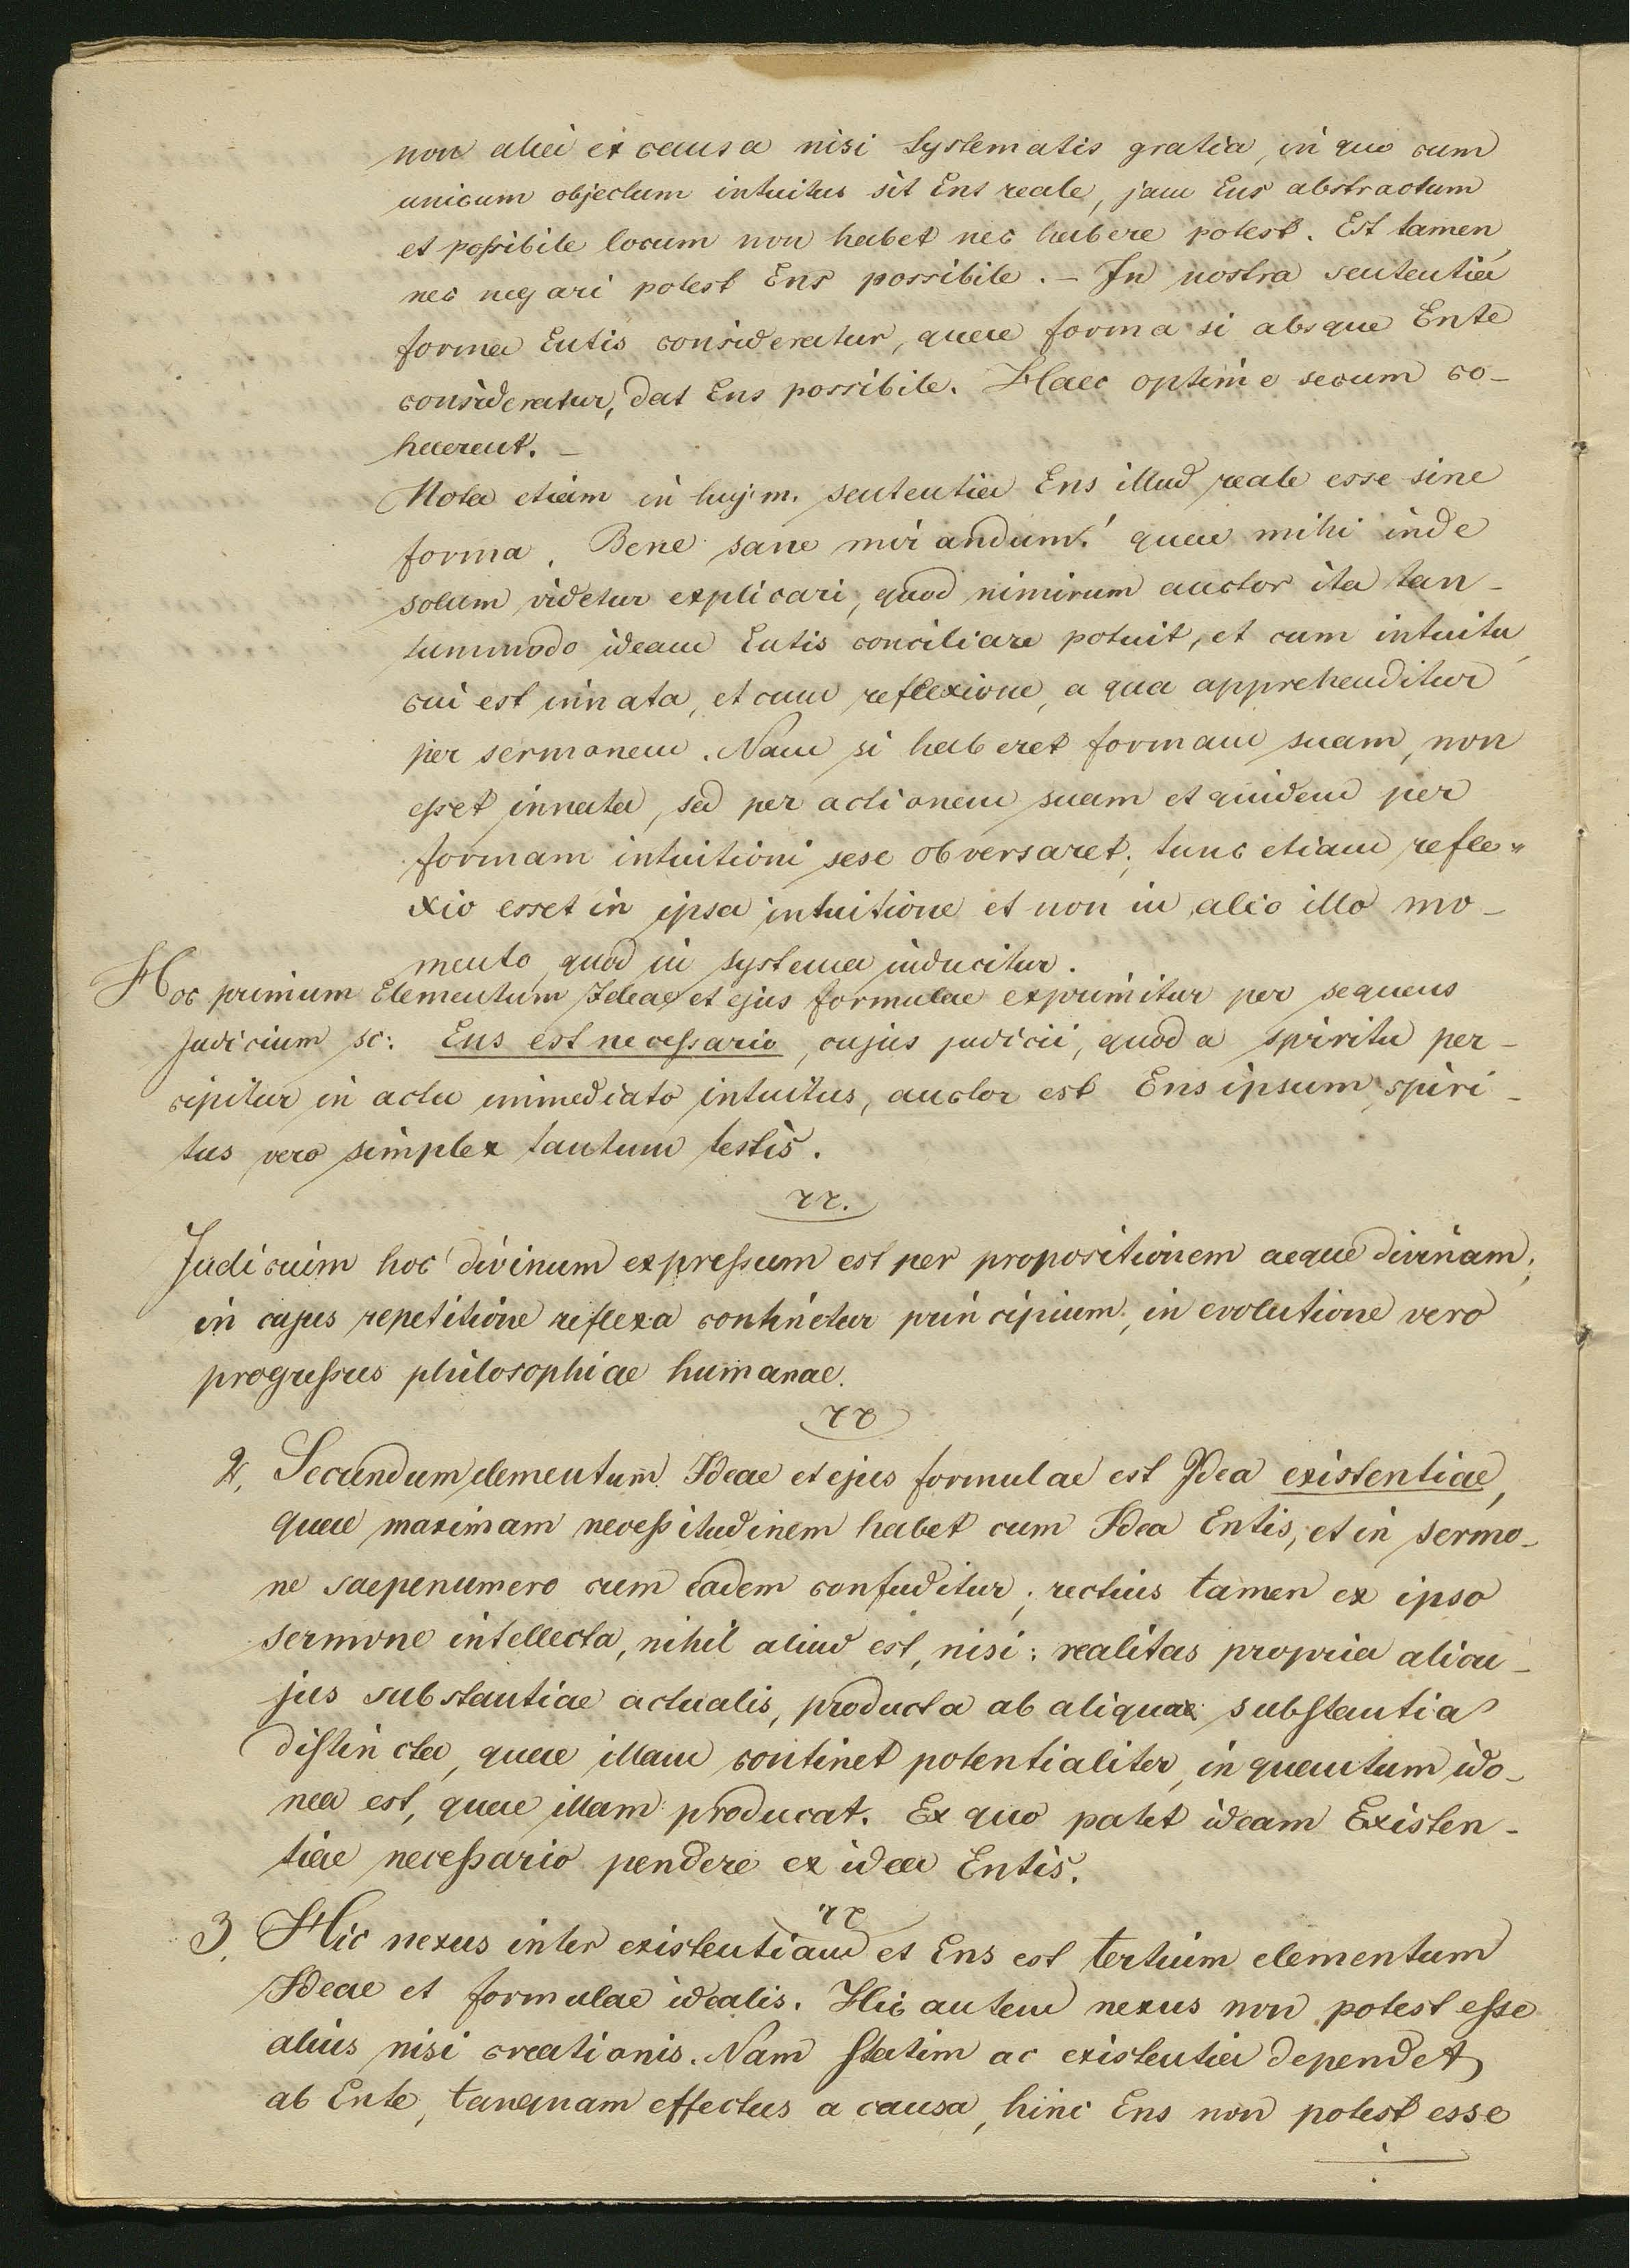 non alia ex causa nisi Systematis gratia, in quo cum
unicum objectum intuitus sit Ens reale, jam Ens abstractum
et possibile locum non habet nec habere potest. Est tamen,
nec negari potest Ens possibile. – In nostra sententia
forma Entis consideratur, quae forma si absque Ente
consideratur, dat Ens possibile. Haec optime secum co-
haerent. –
Nota etiam in huj. m. sententia Ens illud reale esse sine
forma. Bene sane mirandum! quae mihi inde
solum videtur explicari, quod nimirum auctor ita tan-
tummodo ideam Entis conciliare potuit, et cum intuitu,
cui est innata, et cum reflexione, a qua apprehenditur
per sermonem. Nam si haberet formam suam, non
esset innata, sed per actionem suam et quidem per
formam intuitioni sese obversaret; tunc etiam refle-
xio esset in ipsa intuitione et non in alio illo mo-
mento, quod in systema inducitur.
Hoc primum Elementum Ideae et ejus formulae exprimitur per sequens
Judicium sc: Ens est necessario, cujus judicii, quod a spiritu per-
cipitur in actu immediato intuitus, auctor est Ens ipsum, spiri-
tus vero simplex tantum testis.
Judicium hoc divinum expressum est per propositionem aeque divinam;
in cujus repetitione reflexa continetur principium, in evolutione vero
progressus philosophiae humanae.
2, Secundum elementum Ideae et ejus formulae est Idea existentiae,
quae maximam necessitudinem habet cum Idea Entis, et in sermo-
ne saepenumero cum eadem confuditur; rectius tamen ex ipso
sermone intellecta, nihil aliud est, nisi: realitas propria alicu-
jus substantiae actualis, producta ab aliqua substantia
distincta, quae illam continet potentialiter, in quantum ido-
nea est, quae illam producat. Ex quo patet ideam Existen-
tiae necessario pendere ex idea Entis.
3, Hic nexus inter existentiam et Ens est tertium elementum
Ideae et formulae idealis. Hic autem nexus non potest esse
alius nisi creationis. Nam statim ac existentia dependet
ab Ente, tanquam effectus a causa, hinc Ens non potest esse